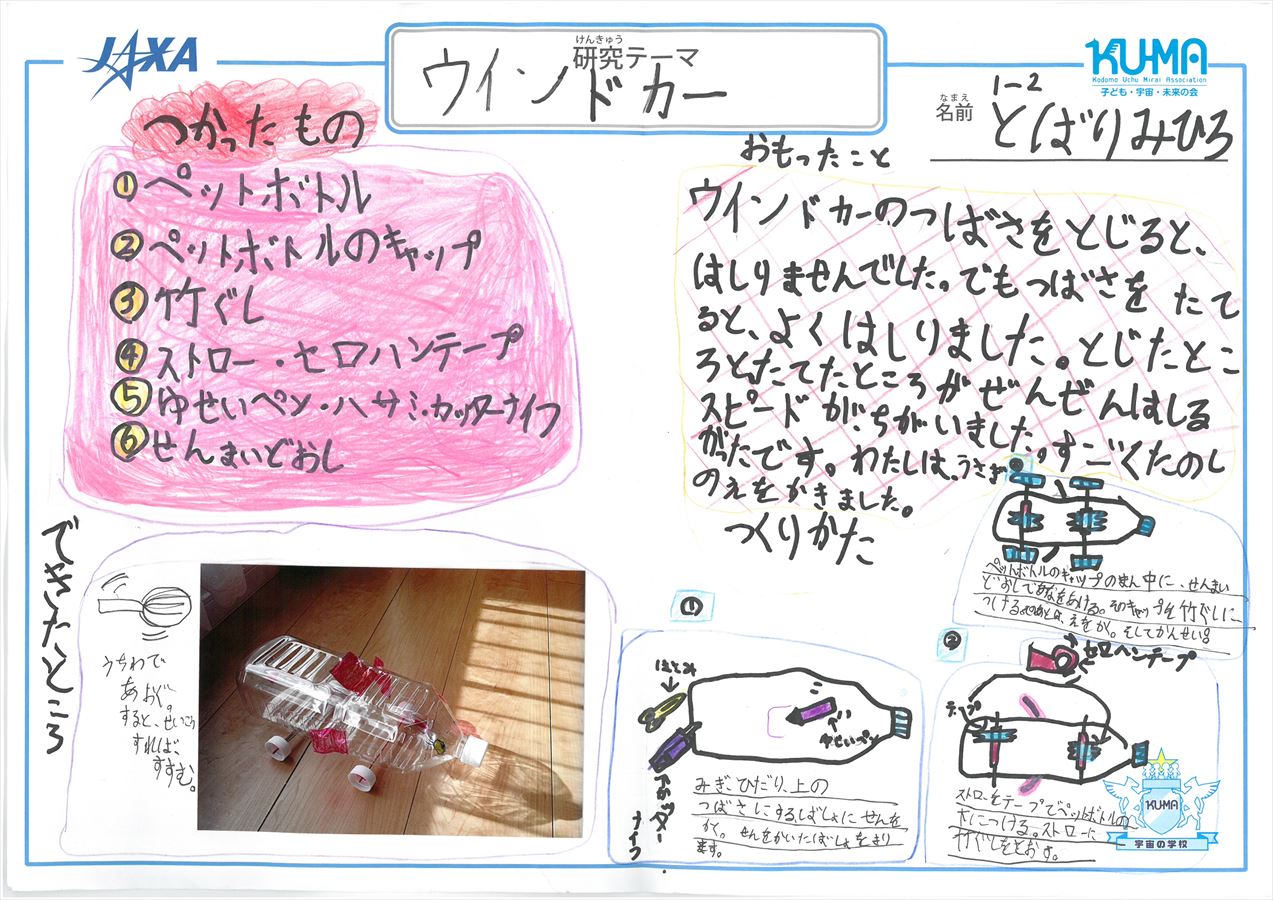 JAXA
けんきゅう
研究テーマ
ウインドカー
KUMA
Kodomo Uchu Mirai Association
子ども・宇宙・未来の会
なまえ
名前
1-2
とばりみひろ
つかったもの
① ペットボトル
② ペットボトルのキャップ
③ 竹ぐし
④ ストロー・セロハンテープ
⑤ ゆせいペン・ハサミ・カッターナイフ
⑥ せんまいどおし
おもったこと
ウインドカーのつばさをとじると、
はしりませんでした。でもつばさをたて
ると、よくはしりました。とじたとこ
ろとたてたところがぜんぜんはしる
スピードが、ちがいました。すごくたのし
がったです。わたしは、うさぎ
のえをかきました。
できたところ
うちわで
あおぐ。
すると、せいこう
すれば、
すすむ。
つくりかた
①
はさみ
ゆせいペン
カッター
ナイフ
みぎ、ひだり、上の
つばさにするばしょにせんを
かく。せんをかいたばしょをきり
ます。
②
セロハンテープ
テープ
ストローをテープでペットボトルの
下につける。ストローに
竹ぐしをとおす。
③
ペットボトルのキャップのまん中に、せんまい
どおしであなをあける。そのキャップを竹ぐしに
つける。そのあとは、えをかく。そしてかんせい。
KUMA
宇宙の学校